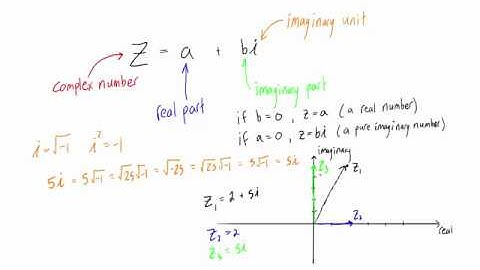 imaginary unit
Z = a + bi
complex number
real part
imaginary part
if b=0, z=a (a real number)
if a=0, z=bi (a pure imaginary number)
i=√-1 i²=-1
5i = 5√-1 = √25√-1 = √-25 = √25√-1 = 5√-1 = 5i
imaginary
Z₃
Z₁
Z₁ = 2 + 5i
Z₂
Z₂ = 2
real
Z₃ = 5i